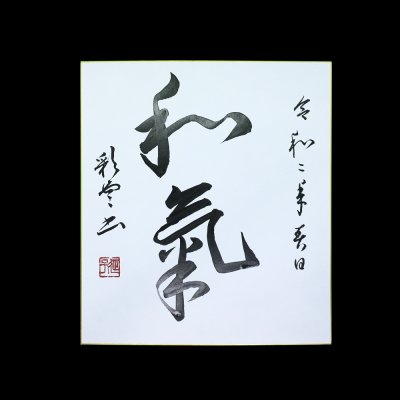 令和二年春日
和氣
彩雲書